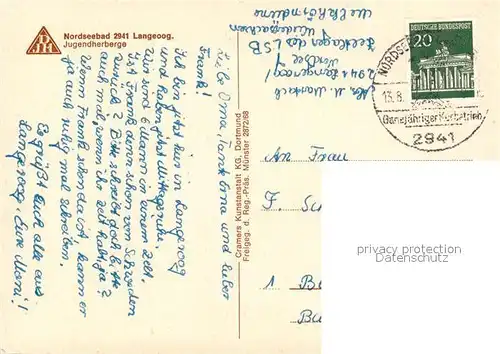 Nordseebad 2941 Langeoog.
Jugendherberge
DJH
Liebe Oma, Tante Erna und lieber
Frank!
Ich bin jetzt hier in Langeoog
und haben jetzt Mittagsruhe.
Wir sind 6 Mann in einem Zelt.
Ist Frank denn schon von Schweden
zurück? Bitte schreibt doch bitte
auch mal, wenn ihr Zeit habt, ja?
Wenn Frank schon da ist kann er
ja auch ruhig mal schreiben.
Es grüßt Euch alle aus
Langeoog, Eure Moni!
Cramers Kunstanstalt KG, Dortmund
Freigeg. d. Reg.-Präs. Münster 2872/68
Abs. M.
2941 Langeoog
Zeltlager des LSB
DEUTSCHE BUNDESPOST
20
NORDSEE
13.8.
Ganzjähriger Kurbetrieb
2941
An Frau
F. S
1 B
B
PROTECTED COPYRIGHT
oldthing.de